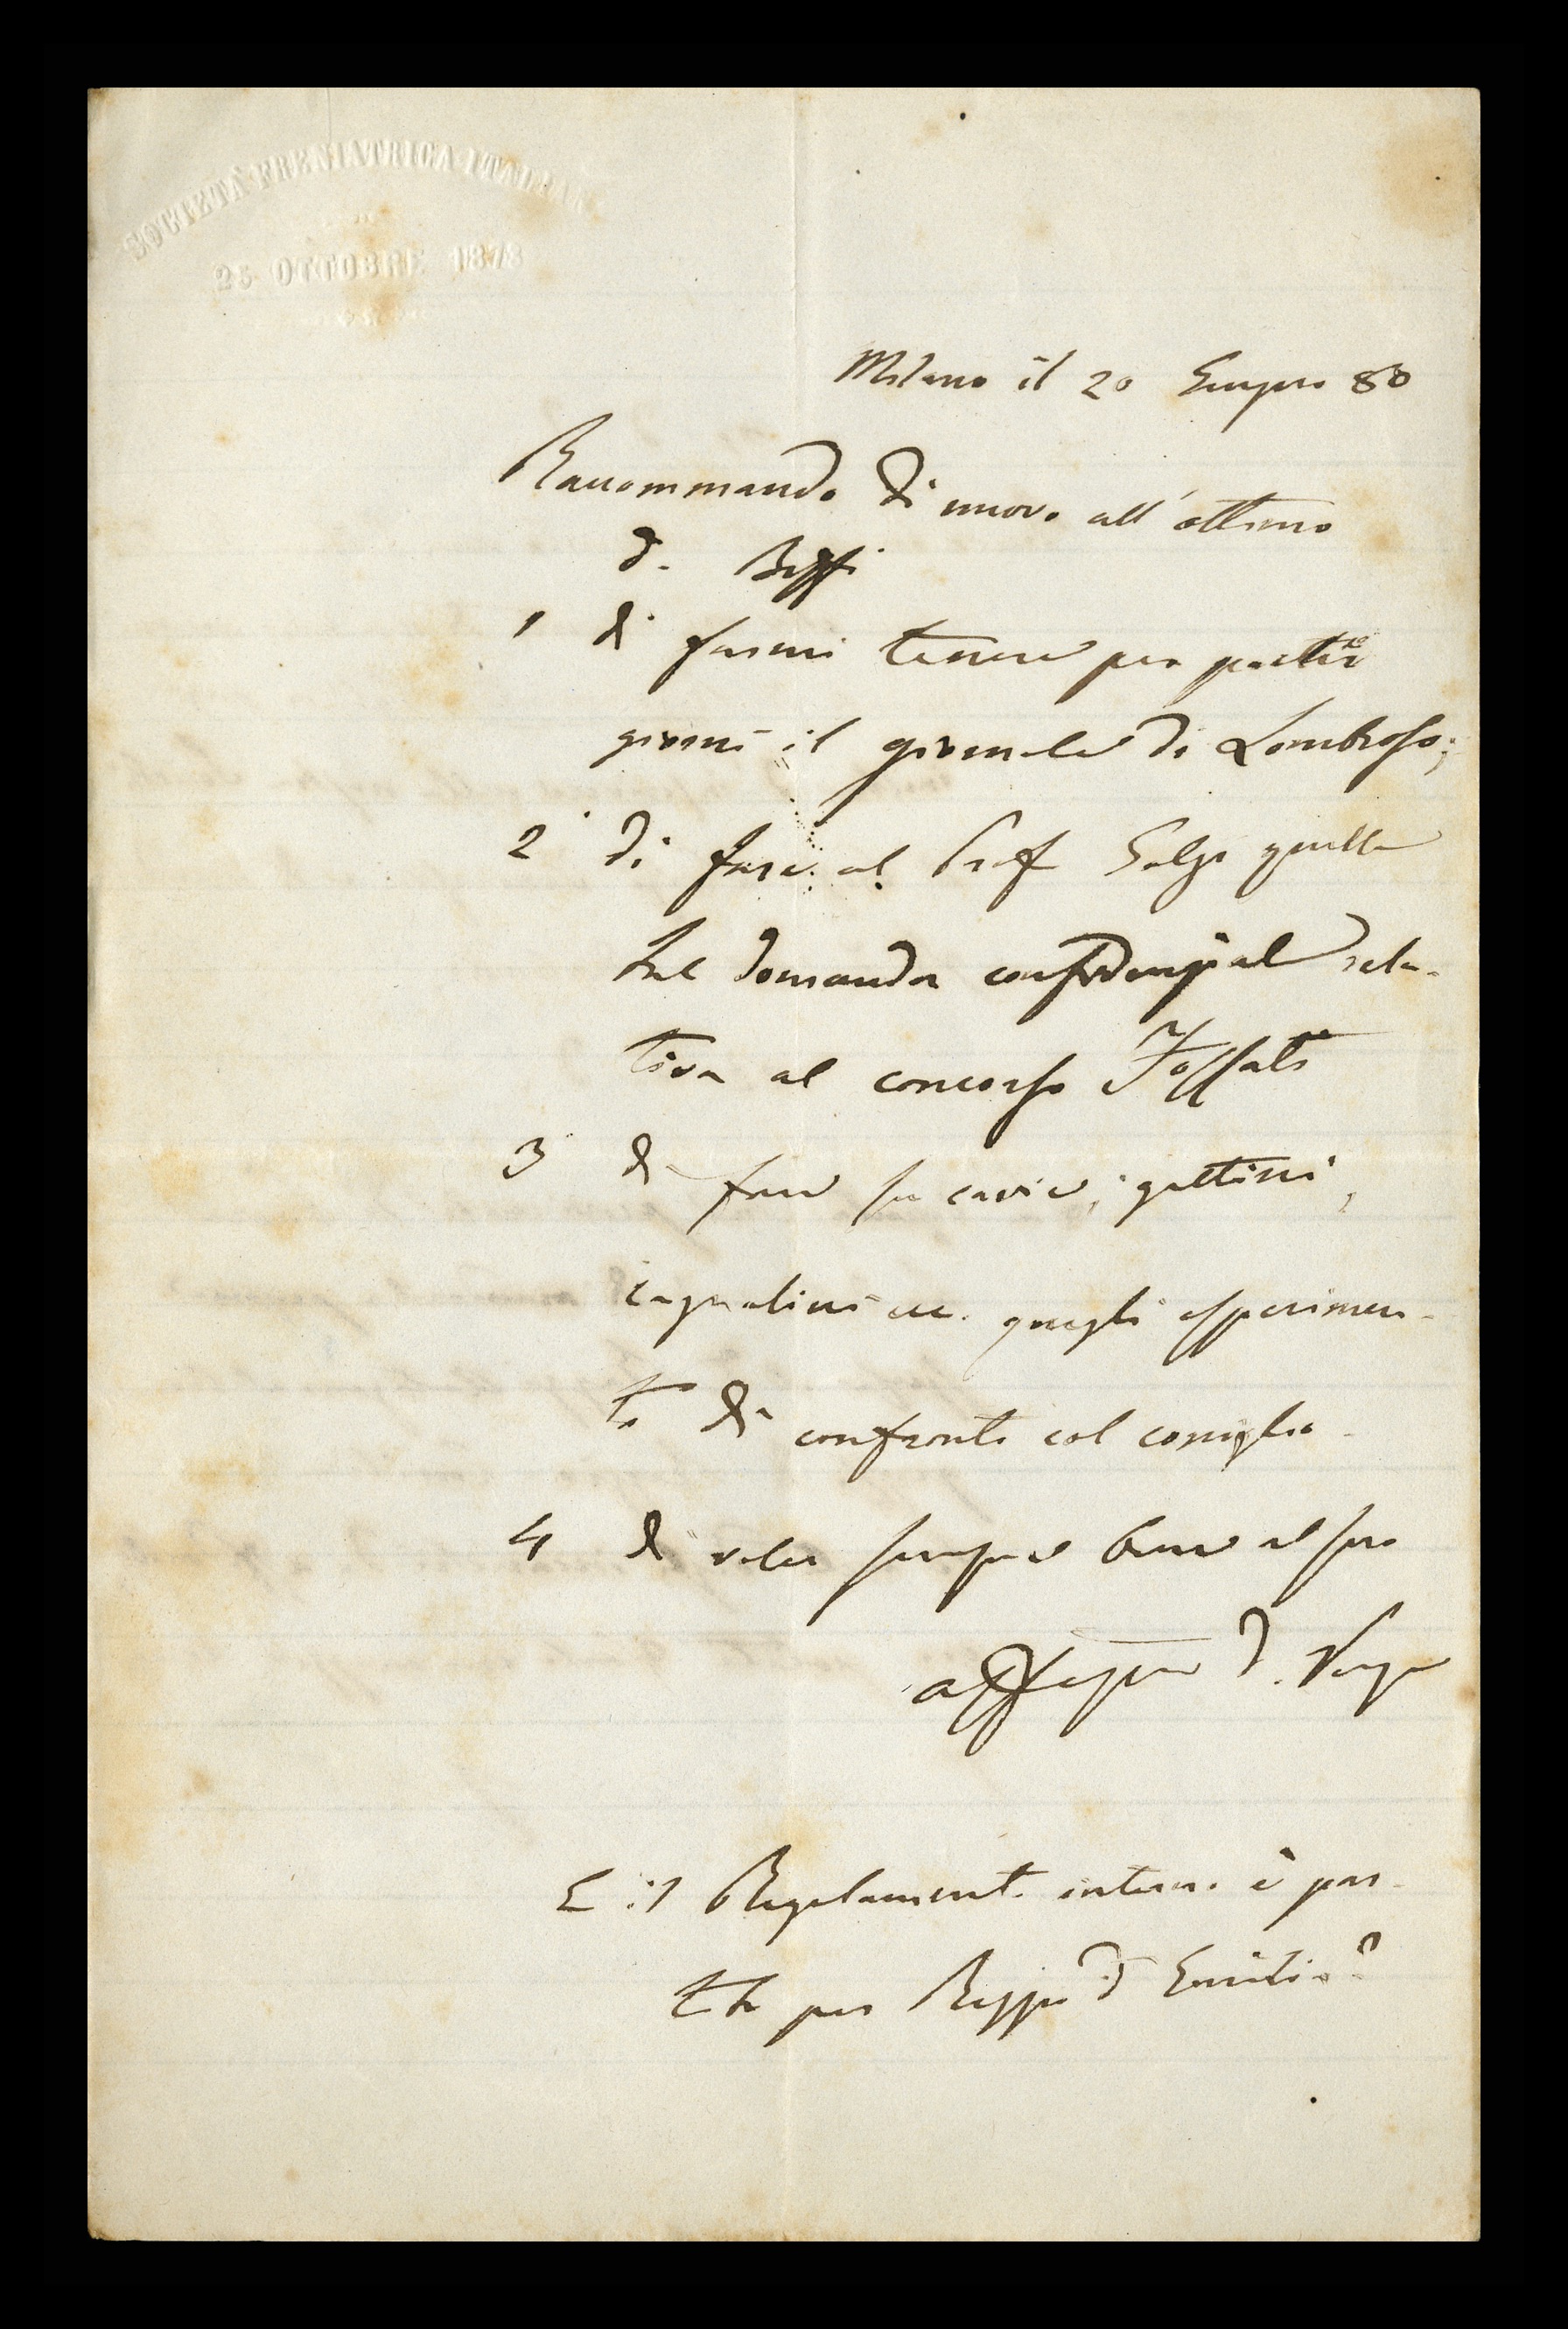 SOCIETÀ FRENIATRICA ITALIANA
25 OTTOBRE 1873
Milano il 20 Giugno 80
Raccommando di nuovo all'ottimo
d. Biffi
1 di farmi tenere per
giorni il giornale di Lombroso;
2 di fare al Prof Golgi quella
tal domanda confidenziale rela-
tiva al concorso Fossati
3 di fare su cavie, gattini,
cagnolini ecc. quegli esperimen-
ti di confronto col coniglio.
4 di voler sempre bene al suo
d. Verga
E il Regolamento interno è par-
tito per Reggio d'Emilia?